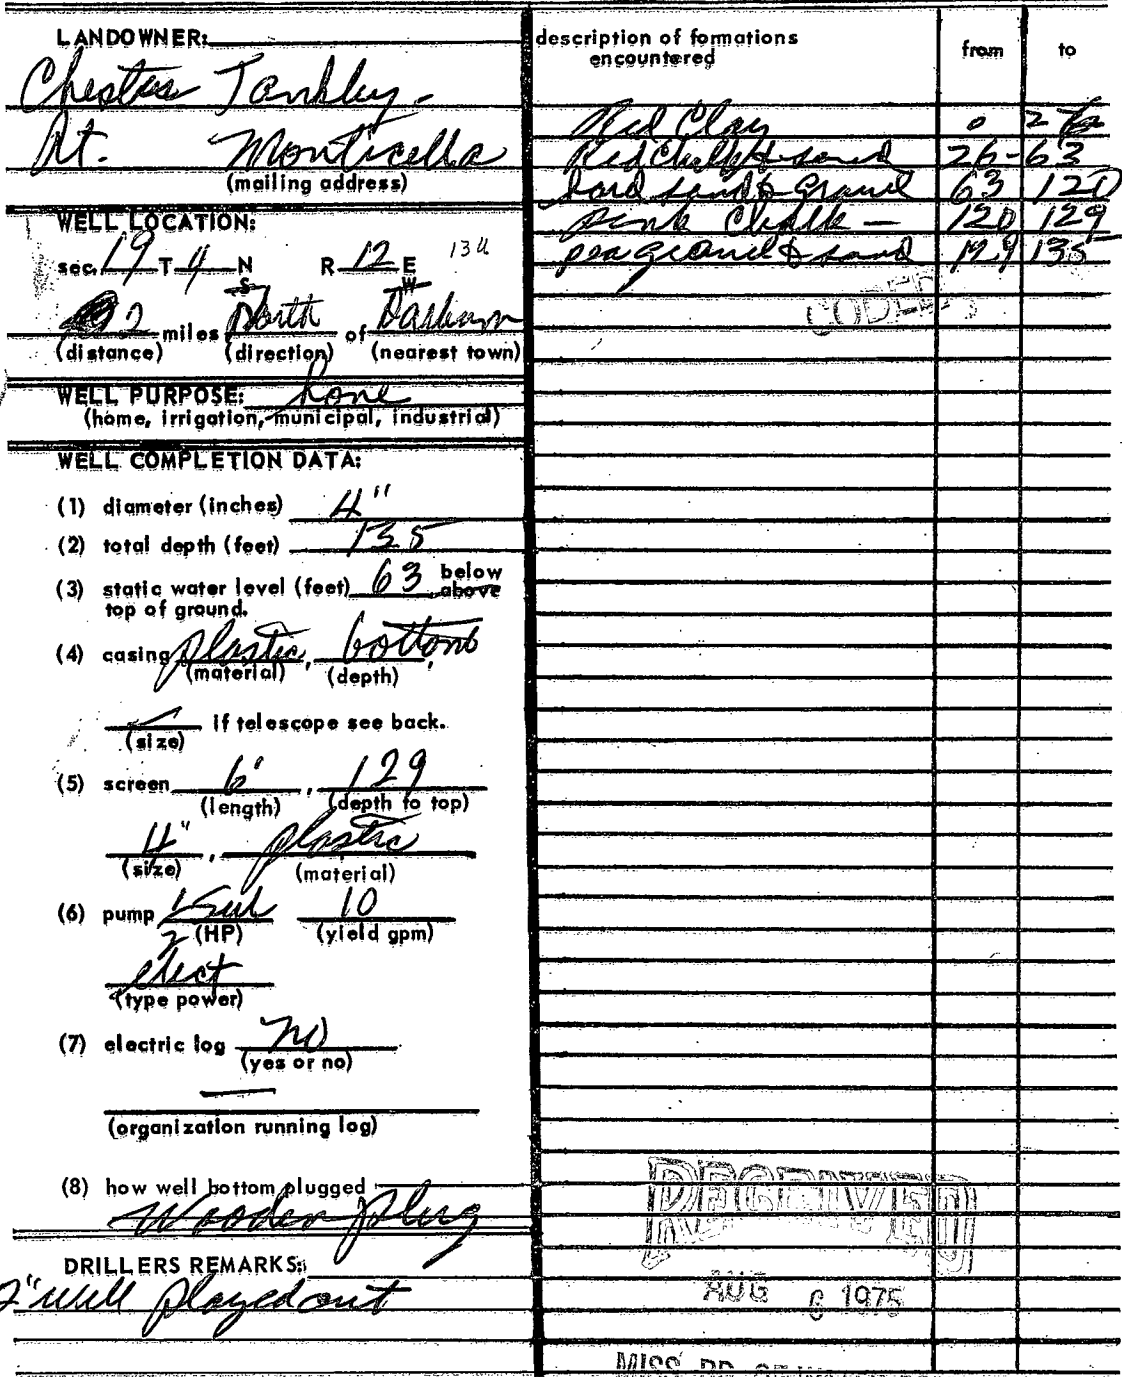 LANDOWNER:
Rt. Monticello
(mailing address)
WELL LOCATION:
sec. 19 T 4 N S R 12 E W 134
2 miles North of
(distance) (direction) (nearest town)
WELL PURPOSE: home
(home, irrigation, municipal, industrial)
WELL COMPLETION DATA:
(1) diameter (inches) 4"
(2) total depth (feet) 135
(3) static water level (feet) 63 below above
top of ground.
(4) casing plastic, bottom,
(material) (depth)
if telescope see back.
(size)
(5) screen 6', 129
(length) (depth to top)
4", plastic
(size) (material)
(6) pump 1/2 Sub 10
(HP) (yield gpm)
elect
(type power)
(7) electric log no
(yes or no)
(organization running log)
(8) how well bottom plugged
Wooden plug
DRILLERS REMARKS:
2" well played out
description of formations encountered from to
Red Clay 0 26
Red Chalk & sand 26-63
hard sand & gravel 63 120
pink Chalk — 120 129
pea gravel & sand 129 135
CODED
RECEIVED
AUG 6 1975